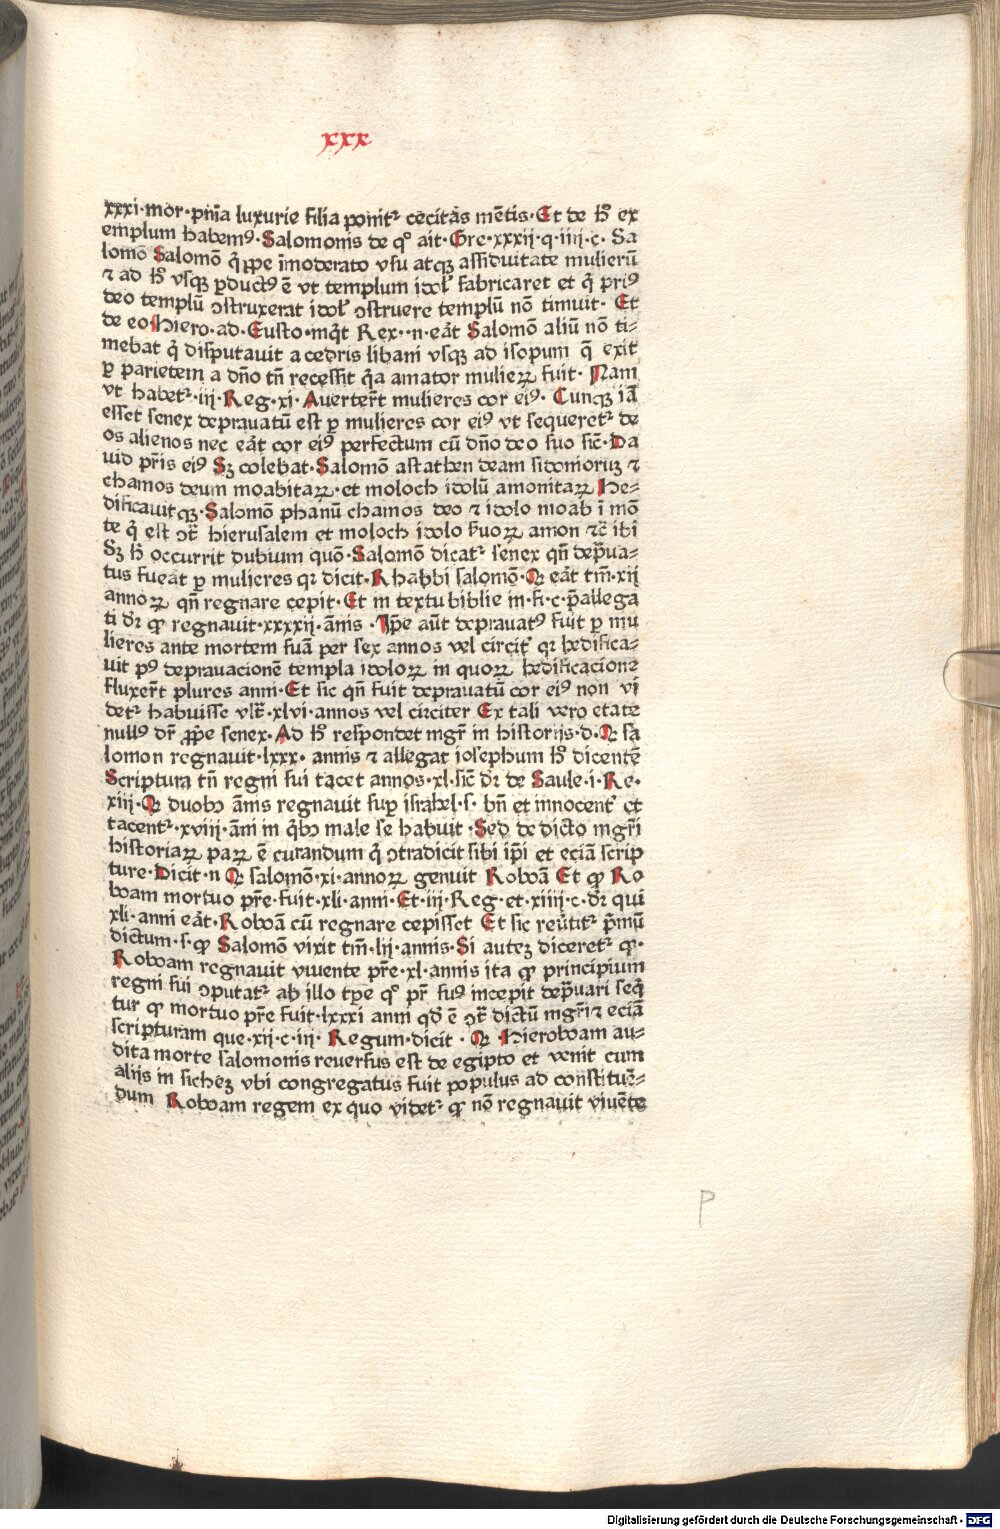 xxx
xxxi·mor·pm̄a luxurie filia ponit᷑ cecitās mētis·Et de h° ex
emplum habemꝰ·Salomonis de q° ait·Gre·xxxii·q·iiii·c· Sa
lomō Salomō q̇ ꝓpe īmoderato vsu atqꝫ assiduitate mulierū
⁊ ad h° vsqꝫ ꝑductꝰ ē vt templum idol᷑ fabricaret et q̇ priꝰ
deo templū ↄstruxerat idol᷑ ↄstruere templū nō timuit· Et
de eo·Hiero·ad·Eusto·mq̇t Rex··n·eāt Salomō aliū nō ti⸗
mebat q̇ disputauit a cedris libani vsqꝫ ad isopum q̄ exit
ꝑ parietem a dn̄o tn̄ recessit q̇a amator mulieꝝ fuit· Nam
vt habet᷑·iij·Reg·xi·Auerter̄t mulieres cor eiꝰ· Cunqꝫ iā
esset senex deprauatū est ꝑ mulieres cor eiꝰ vt sequeret᷑ de
os alienos nec eāt cor eiꝰ perfectum cū dn̄o deo suo sic̄·Da
uid pr̄is eiꝰ Sꝫ colebat·Salomō astathen deam sidonioruꝫ ⁊
chamos deum moabitaꝝ·et moloch idolū amonitaꝝ He⸗
dificauitqꝫ·Salomō phanū chamos deo ⁊ idolo moab ī mō
te q̇ est ↄt̄ hierusalem et moloch idolo f̄uoꝝ amon ⁊c̄ ibi
Sꝫ h̄ occurrit dubium quō·Salomō dicat᷑ senex qn̄ dep̄ua⸗
tus fueāt ꝑ mulieres qꝛ dicit·Rhabbi salomō·Q eāt tm̄·xij
annoꝝ qn̄ regnare cepit·Et in textu biblie in·fi·c·p̄allega
ti dr̄ ꝙ regnauit·xxxxij·ām̄s ·Ip̄e aūt deprauatꝰ fuit ꝑ mu
lieres ante mortem suā per sex annos vel circit᷑ qꝛ hedifica⸗
uit pꝰ deprauacionē templa idoloꝝ in quoꝝ hedificacione
fluxer̄t plures anni·Et sic qn̄ fuit deprauatū cor eiꝰ non vi
det᷑ habuisse vlt̄·xlvi·annos vel circiter Ex tali vero etate
nullꝰ dr̄ ꝓpe senex·Ad h° respondet mgr̄ in historijs·d·Q sa
lomon regnauit·lxxx· annis ⁊ allegat iosephum h° dicentē
Scriptura tn̄ regni sui tacet annos·xl·sic̄ dr̄ de Saule·i·Re·
xiij·Q duobꝫ ām̄s regnauit suꝑ israhel·s· bn̄ et innocent᷑ et
tacent᷑·xviii·ām̄ in q̇bꝫ male se habuit ·Sed de dicto mgr̄i
historiaꝝ paꝝ ē curandum q̇ ↄtradicit sibi ip̄i et eciā scrip
ture·Dicit·n Q salomō·xi·annoꝝ genuit Roboā Et ꝙ Ro
boam mortuo pr̄e·fuit·xli·anni·Et·iij·Reg·et·xiiij·c·dr̄ qui
xli·anni eāt·Roboā cū regnare cepisset Et sic reūtit᷑ p̄mū
dictum·s·ꝙ Salomō vixit tm̄·lij·annis·Si auteꝫ diceret᷑ ꝙ·
Roboam regnauit viuente pr̄e·xl·annis ita ꝙ principium
regni sui ↄputat᷑ ab illo tp̄e q° pr̄ suꝰ incepit dep̄uari seq̄
tur ꝙ mortuo pr̄e fuit·lxxxi anni qd̄ ē ↄt̄ dictū mgr̄i ⁊ eciā
scripturam que·xij·c·iij· Regum·dicit · Q Hieroboam au⸗
dita morte salomonis reuersus est de egipto et venit cum
alijs in sicheꝫ vbi congregatus fuit populus ad constituē⸗
dum Roboam regem ex quo videt᷑ ꝙ nō regnauit viuēte
P
Digitalisierung gefördert durch die Deutsche Forschungsgemeinschaft - DFG